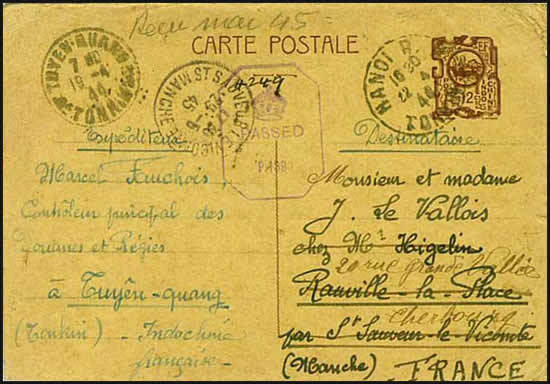 Reçu mai 45
CARTE POSTALE
TUYEN-QUANG
7 30
19-4
44
TONKIN
HANOI R.P.
16 30
22 4
44
TONKIN
4249
ST SAUVEUR LE VICOMTE
MANCHE
45
PASSED
Expéditeur
Marcel Fauchois,
Contrôleur principal des
Douanes et Régies
à Tuyên-quang
(Tonkin) - Indochine
française -
Destinataire
Monsieur et madame
J. Le Vallois
chez Mr Higelin
20 rue grande Vallée
Rauville-la-Place
Cherbourg
par St Sauveur le Vicomte
(Manche) - FRANCE